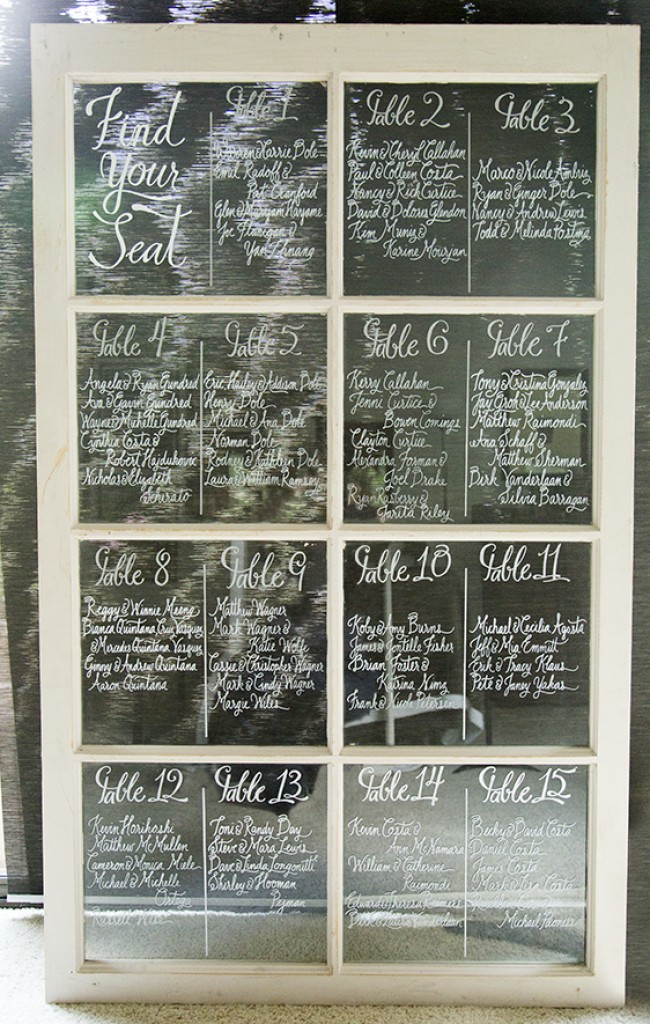 Find
Your
Seat
Table 1
Warren & Carrie Dole
Emil Radoff &
Pat Cranford
Glen & Maryam Maryame
Joe Flanagan &
Yan
Table 2
Kevin & Cheryl Callahan
Paul & Colleen Costa
Nancy & Rick Curtice
David & Dolores Glendon
Kim Muniz &
Karine Mourjan
Table 3
Marco & Nicole Ambriz
Ryan & Ginger Dole
Nancy & Andrew Lewis
Todd & Melinda Postma
Table 4
Angela & Ryan Gundred
Ava & Gavin Gundred
Wayne & Michelle Gundred
Cynthia Costa &
Robert Hajdukovic
Nicholas & Elizabeth
Table 5
Eric, Hailey & Addison Dole
Henry Dole
Michael & Ana Dole
Norman Dole
Rodney & Kathleen Dole
Laura & William Ramsey
Table 6
Kerry Callahan
Jenni Curtice &
Bowen Comings
Clayton Curtice
Alexandra Forman &
Joel Drake
Ryan Raspberry &
Tarita Riley
Table 7
Tony & Cristina Gonzalez
Jay Gron & Lee Anderson
Matthew Raimondi
Ana Schaff &
Matthew Sherman
Dirk Vanderlaan &
Silvia Barragan
Table 8
Reggy & Winnie Meeng
Bianca Quintana, Cruz Vasquez
& Mercedes Quintana Vasquez
Ginny & Andrew Quintana
Aaron Quintana
Table 9
Matthew Wagner
Mark Wagner &
Katie Wolfe
Cassie & Christopher Wagner
Mark & Cindy Wagner
Margie Wiles
Table 10
Koby & Amy Burns
James & Jontelle Fisher
Brian Foster &
Katrina Nimz
Frank & Nicole Petersen
Table 11
Michael & Cecilia Agosta
Jeff & Mia Emmitt
Erik & Tracy Klaus
Pete & Janey Yakas
Table 12
Kevin Horikoshi
Matthew McMullen
Cameron & Monica Miele
Michael & Michelle
Ortega
Table 13
Toni & Randy Day
Steve & Mara Lewis
Dave & Linda Longonitti
Shirley & Hooman
Pezman
Table 14
Kevin Costa &
Ann McNamara
William & Catherine
Raimondi
Edward & Theresa
Vanderlaan
Table 15
Becky & David Costa
Daniel Costa
James Costa
Mark & Lisa Costa
Michael